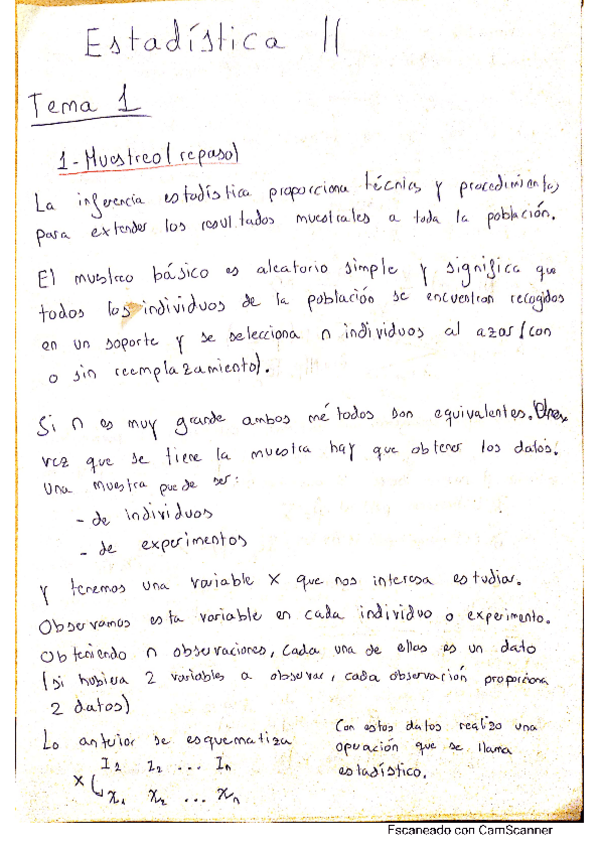 Estadística II
Tema 1
1- Muestreo (repaso)
La inferencia estadística proporciona técnicas y procedimientos
para extender los resultados muestrales a toda la población.
El muestreo básico es aleatorio simple y significa que
todos los individuos de la población se encuentran recogidos
en un soporte y se selecciona n individuos al azar (con
o sin reemplazamiento).
Si n es muy grande ambos métodos son equivalentes. Una
vez que se tiene la muestra hay que obtener los datos.
Una muestra puede ser:
- de individuos
- de experimentos
y tenemos una variable X que nos interesa estudiar.
Observamos esta variable en cada individuo o experimento.
Obteniendo n observaciones, cada una de ellas es un dato
(si hubiera 2 variables a observar, cada observación proporciona
2 datos)
Lo anterior se esquematiza
I₁ I₂ ... Iₙ
X x₁ x₂ ... xₙ
Con estos datos realizo una
operación que se llama
estadístico.
Escaneado con CamScanner